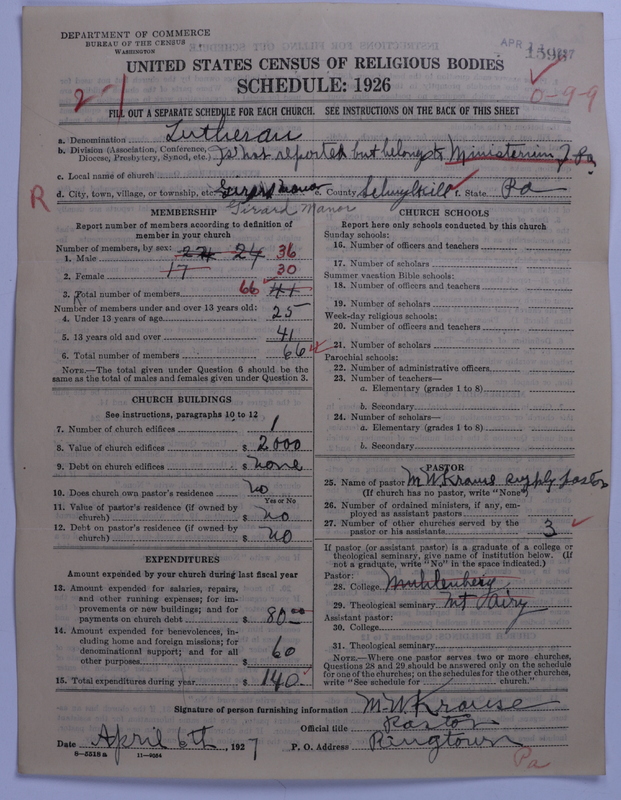 DEPARTMENT OF COMMERCE
BUREAU OF THE CENSUS
WASHINGTON
APR
UNITED STATES CENSUS OF RELIGIOUS BODIES
SCHEDULE: 1926
2-1
0-9-9
FILL OUT A SEPARATE SCHEDULE FOR EACH CHURCH. SEE INSTRUCTIONS ON THE BACK OF THIS SHEET
a. Denomination Lutheran
b. Division (Association, Conference, Diocese, Presbytery, Synod, etc.) Is not reported but belongs to Ministerium of Pa
c. Local name of church
R
d. City, town, village, or township, etc. Girard Manor e. County Schuylkill f. State Pa
Girard Manor
MEMBERSHIP
Report number of members according to definition of
member in your church
Number of members, by sex:
1. Male 24 36
2. Female 17 30
3. Total number of members 66 41
Number of members under and over 13 years old:
4. Under 13 years of age 25
5. 13 years old and over 41
6. Total number of members 66
NOTE.—The total given under Question 6 should be the
same as the total of males and females given under Question 3.
CHURCH BUILDINGS
See instructions, paragraphs 10 to 12
7. Number of church edifices 1
8. Value of church edifices $ 2000
9. Debt on church edifices $ none
10. Does church own pastor's residence no
Yes or No
11. Value of pastor's residence (if owned by
church) $ no
12. Debt on pastor's residence (if owned by
church) $ no
EXPENDITURES
Amount expended by your church during last fiscal year
13. Amount expended for salaries, repairs,
and other running expenses; for im-
provements or new buildings; and for
payments on church debt $ 80.00
14. Amount expended for benevolences, in-
cluding home and foreign missions; for
denominational support; and for all
other purposes $ 60
15. Total expenditures during year $ 140.
CHURCH SCHOOLS
Report here only schools conducted by this church
Sunday schools:
16. Number of officers and teachers
17. Number of scholars
Summer vacation Bible schools:
18. Number of officers and teachers
19. Number of scholars
Week-day religious schools:
20. Number of officers and teachers
21. Number of scholars
Parochial schools:
22. Number of administrative officers
23. Number of teachers—
a. Elementary (grades 1 to 8)
b. Secondary
24. Number of scholars—
a. Elementary (grades 1 to 8)
b. Secondary
PASTOR
25. Name of pastor M W Krause supply pastor
(If church has no pastor, write "None")
26. Number of ordained ministers, if any, em-
ployed as assistant pastors
27. Number of other churches served by the
pastor or his assistants 3
If pastor (or assistant pastor) is a graduate of a college or
theological seminary, give name of institution below. (If
not a graduate, write "No" in the space indicated.)
Pastor:
28. College Muhlenberg
29. Theological seminary Mt Airy
Assistant pastor:
30. College
31. Theological seminary
NOTE.—Where one pastor serves two or more churches,
Questions 28 and 29 should be answered only on the schedule
for one of the churches; on the schedules for the other churches,
write "See schedule for church."
Signature of person furnishing information M. W. Krause
Official title Pastor
Date April 6th, 1927 P. O. Address Ringtown
Pa
8—5518 a 11—9054